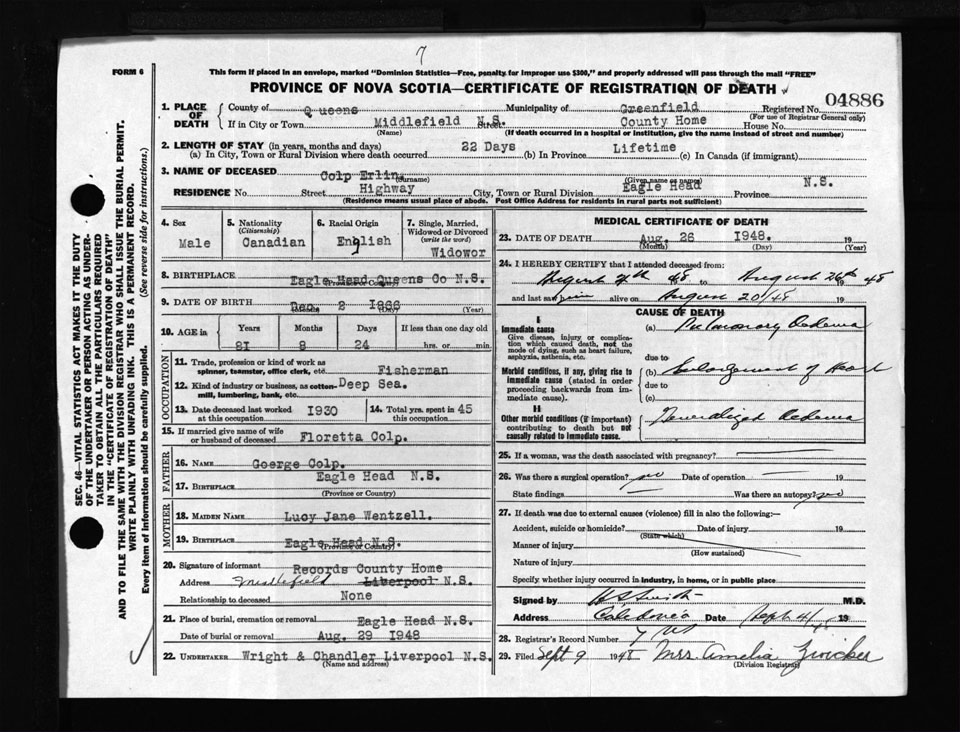 7
FORM 6
This form if placed in an envelope, marked "Dominion Statistics—Free, penalty for improper use $300," and properly addressed will pass through the mail "FREE"
PROVINCE OF NOVA SCOTIA—CERTIFICATE OF REGISTRATION OF DEATH
04886
1. PLACE OF DEATH { County of Queens Municipality of Greenfield Registered No.
(For use of Registrar General only)
If in City or Town Middlefield N.S. Street County Home House No.
(Name) (If death occurred in a hospital or institution, give the name instead of street and number)
2. LENGTH OF STAY (in years, months and days)
(a) In City, Town or Rural Division where death occurred 22 Days (b) In Province Lifetime (c) In Canada (if immigrant)
3. NAME OF DECEASED Colp Erlin
(Surname) (Given name or names)
RESIDENCE No. Street Highway City, Town or Rural Division Eagle Head Province N.S.
(Residence means usual place of abode. Post Office Address for residents in rural parts not sufficient)
4. Sex Male
5. Nationality (Citizenship) Canadian
6. Racial Origin English
7. Single, Married, Widowed or Divorced (write the word) Widowor
8. BIRTHPLACE Eagle Head Queens Co N.S.
(Province or Country)
9. DATE OF BIRTH Dec. 2 1866
(Month) (Day) (Year)
10. AGE in Years Months Days If less than one day old
81 8 24 hrs. or min.
OCCUPATION
11. Trade, profession or kind of work as spinner, teamster, office clerk, etc. Fisherman
12. Kind of industry or business, as cotton-mill, lumbering, bank, etc. Deep Sea.
13. Date deceased last worked at this occupation 1930
14. Total yrs. spent in this occupation 45
15. If married give name of wife or husband of deceased Floretta Colp.
FATHER
16. NAME Goerge Colp.
17. BIRTHPLACE Eagle Head N.S.
(Province or Country)
MOTHER
18. MAIDEN NAME Lucy Jane Wentzell.
19. BIRTHPLACE Eagle Head N.S.
(Province or Country)
20. Signature of informant Records County Home
Address Middlefield Liverpool N.S.
Relationship to deceased None
21. Place of burial, cremation or removal Eagle Head N.S.
Date of burial or removal Aug. 29 1948
22. UNDERTAKER Wright & Chandler Liverpool N.S.
(Name and address)
MEDICAL CERTIFICATE OF DEATH
23. DATE OF DEATH Aug. 26 1948. 19
(Month) (Day) (Year)
24. I HEREBY CERTIFY that I attended deceased from:
August 48 to August 26th 48
and last saw him alive on August 20/48 19
CAUSE OF DEATH
I
Immediate cause
Give disease, injury or complication which caused death, not the mode of dying, such as heart failure, asphyxia, asthenia, etc.
(a) Pulmonary Oedema
due to
Morbid conditions, if any, giving rise to immediate cause (stated in order proceeding backwards from immediate cause).
(b) Enlargement of Heart
due to
(c)
II
Other morbid conditions (if important) contributing to death but not causally related to immediate cause.
Generalized Oedema
25. If a woman, was the death associated with pregnancy?
26. Was there a surgical operation? no Date of operation 19
State findings Was there an autopsy? no
27. If death was due to external causes (violence) fill in also the following:—
Accident, suicide or homicide? Date of injury 19
(State which)
Manner of injury
(How sustained)
Nature of injury
Specify whether injury occurred in industry, in home, or in public place
Signed by Smith M.D.
Address Caledonia Date Sept 4/48 19
28. Registrar's Record Number 7
29. Filed Sept 9 1948 Mrs. Amelia Zwicker
(Division Registrar)
SEC. 46—VITAL STATISTICS ACT MAKES IT THE DUTY
OF THE UNDERTAKER OR PERSON ACTING AS UNDER-
TAKER TO OBTAIN ALL THE PARTICULARS REQUIRED
IN THE "CERTIFICATE OF REGISTRATION OF DEATH"
AND TO FILE THE SAME WITH THE DIVISION REGISTRAR WHO SHALL ISSUE THE BURIAL PERMIT.
WRITE PLAINLY WITH UNFADING INK. THIS IS A PERMANENT RECORD.
Every item of information should be carefully supplied. (See reverse side for instructions.)